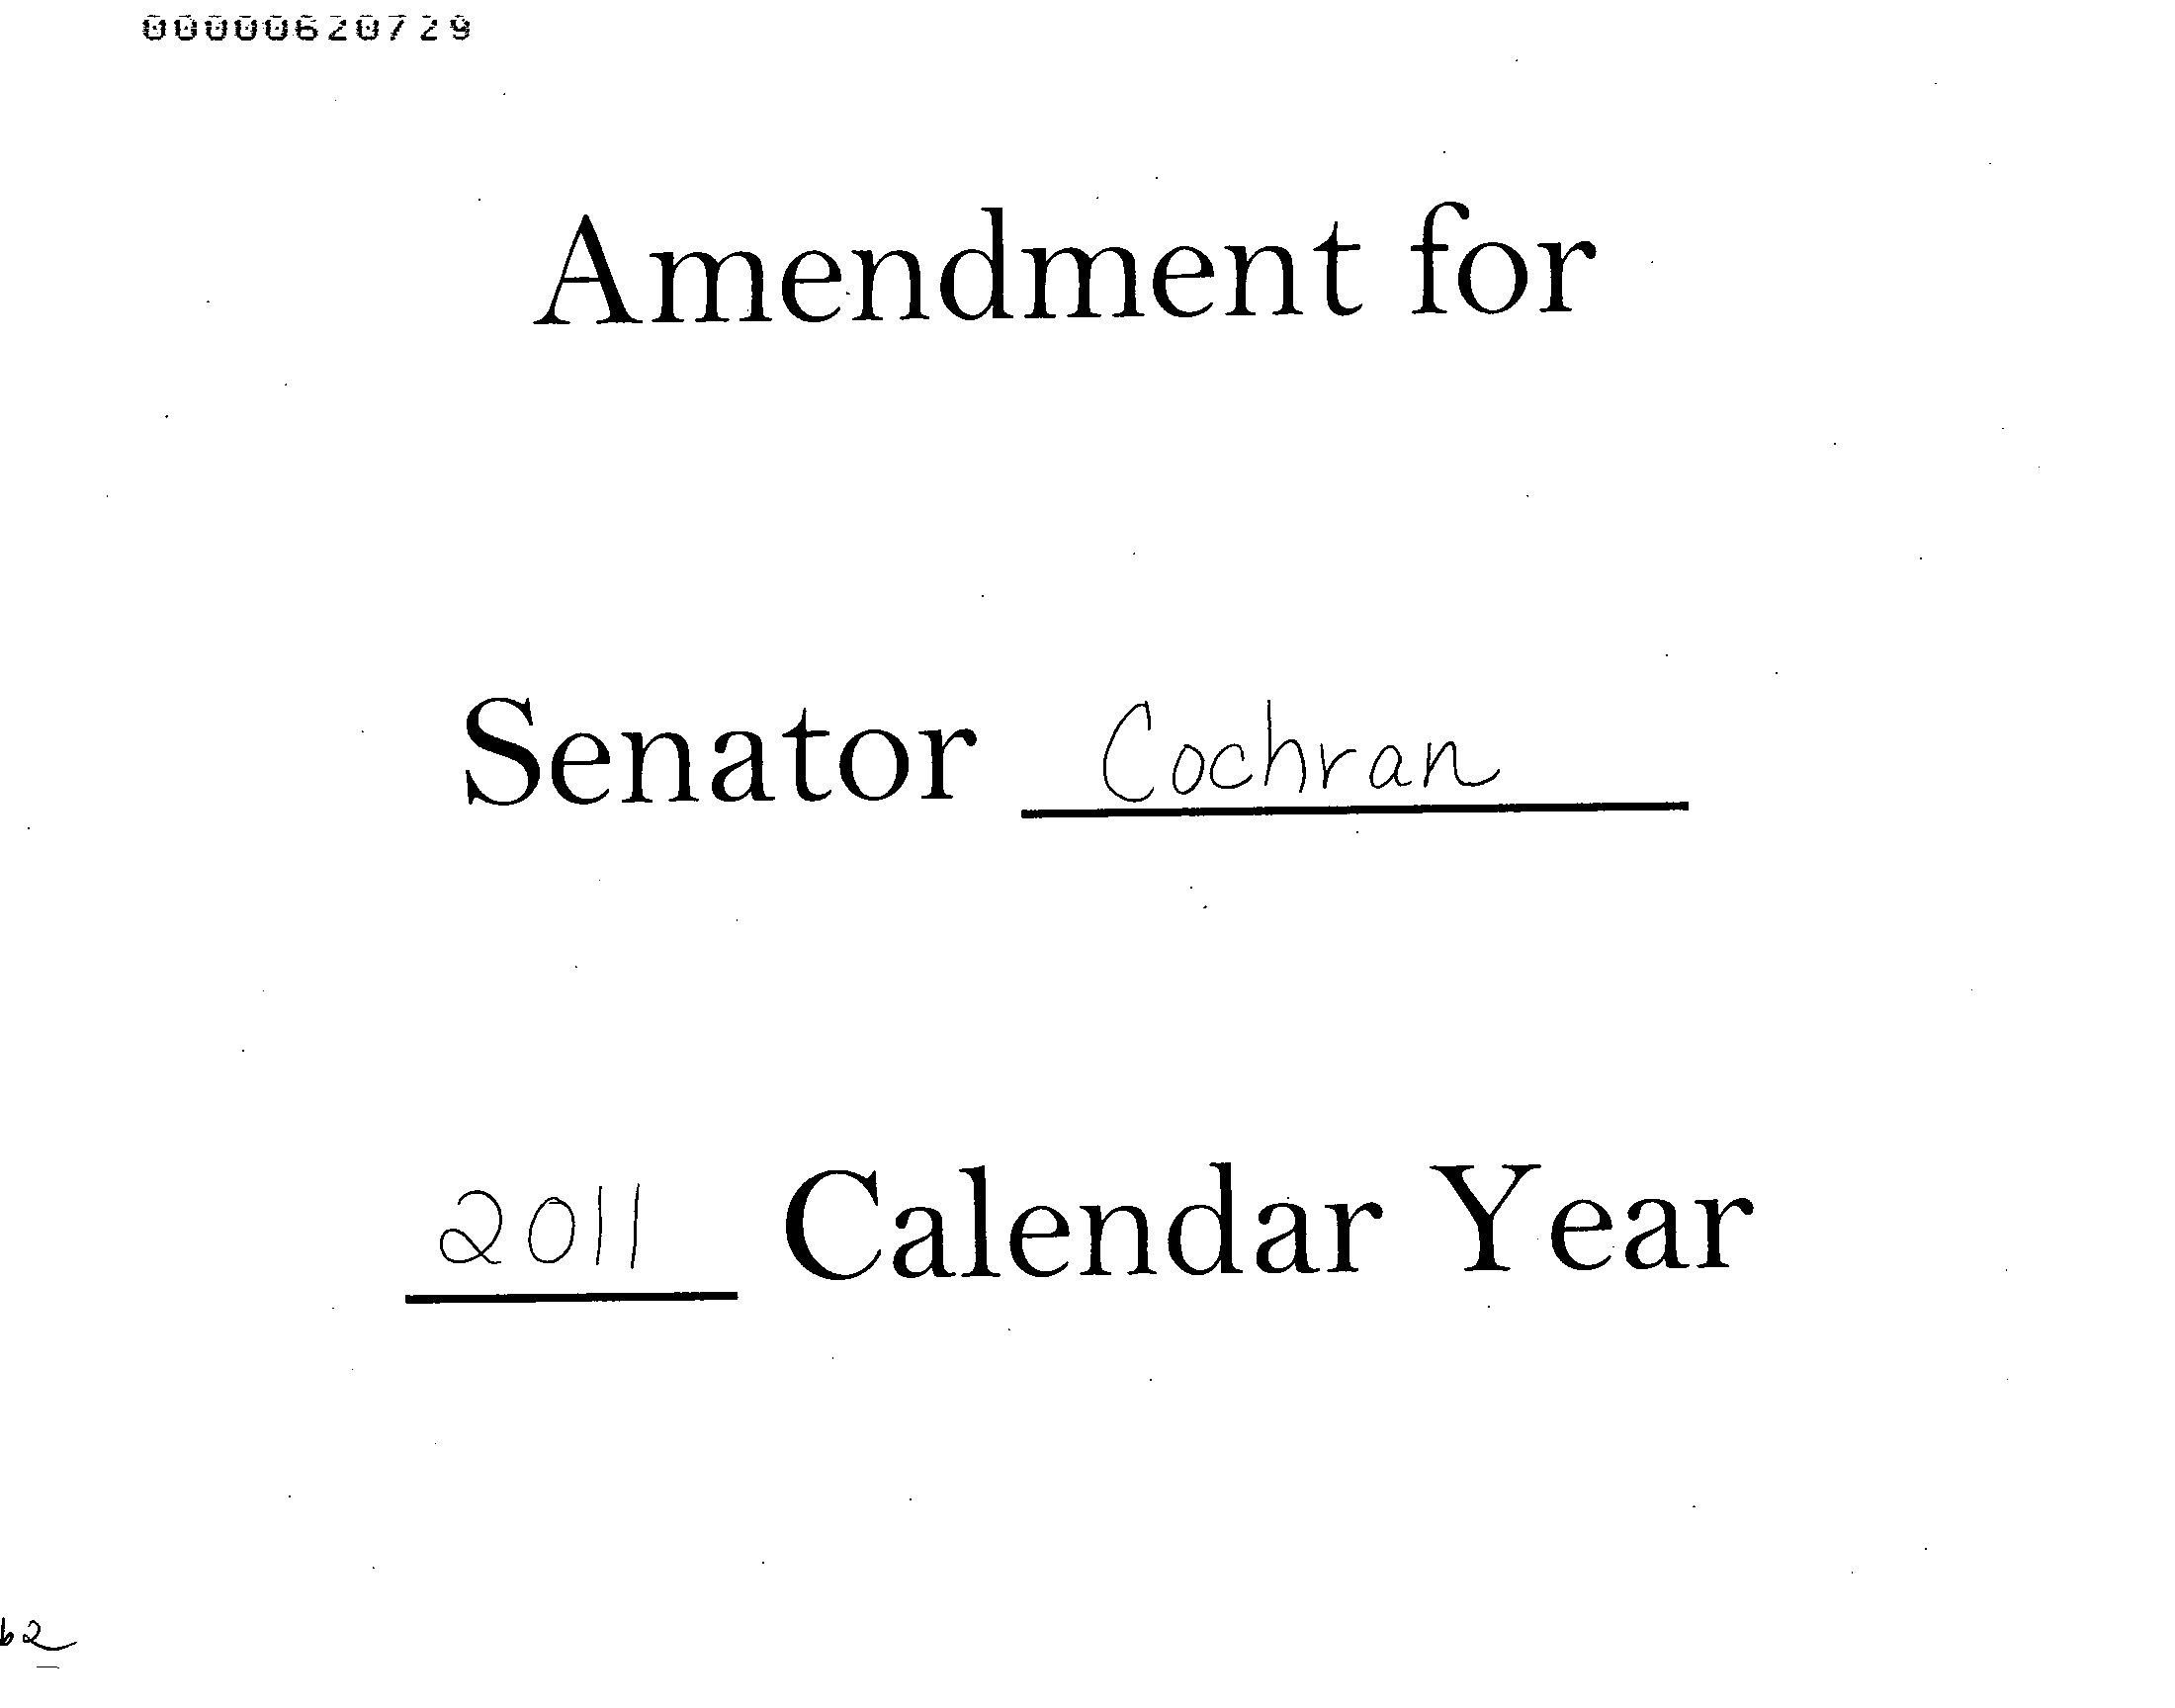 00000620729
Amendment for
Senator Cochran
2011 Calendar Year
b2